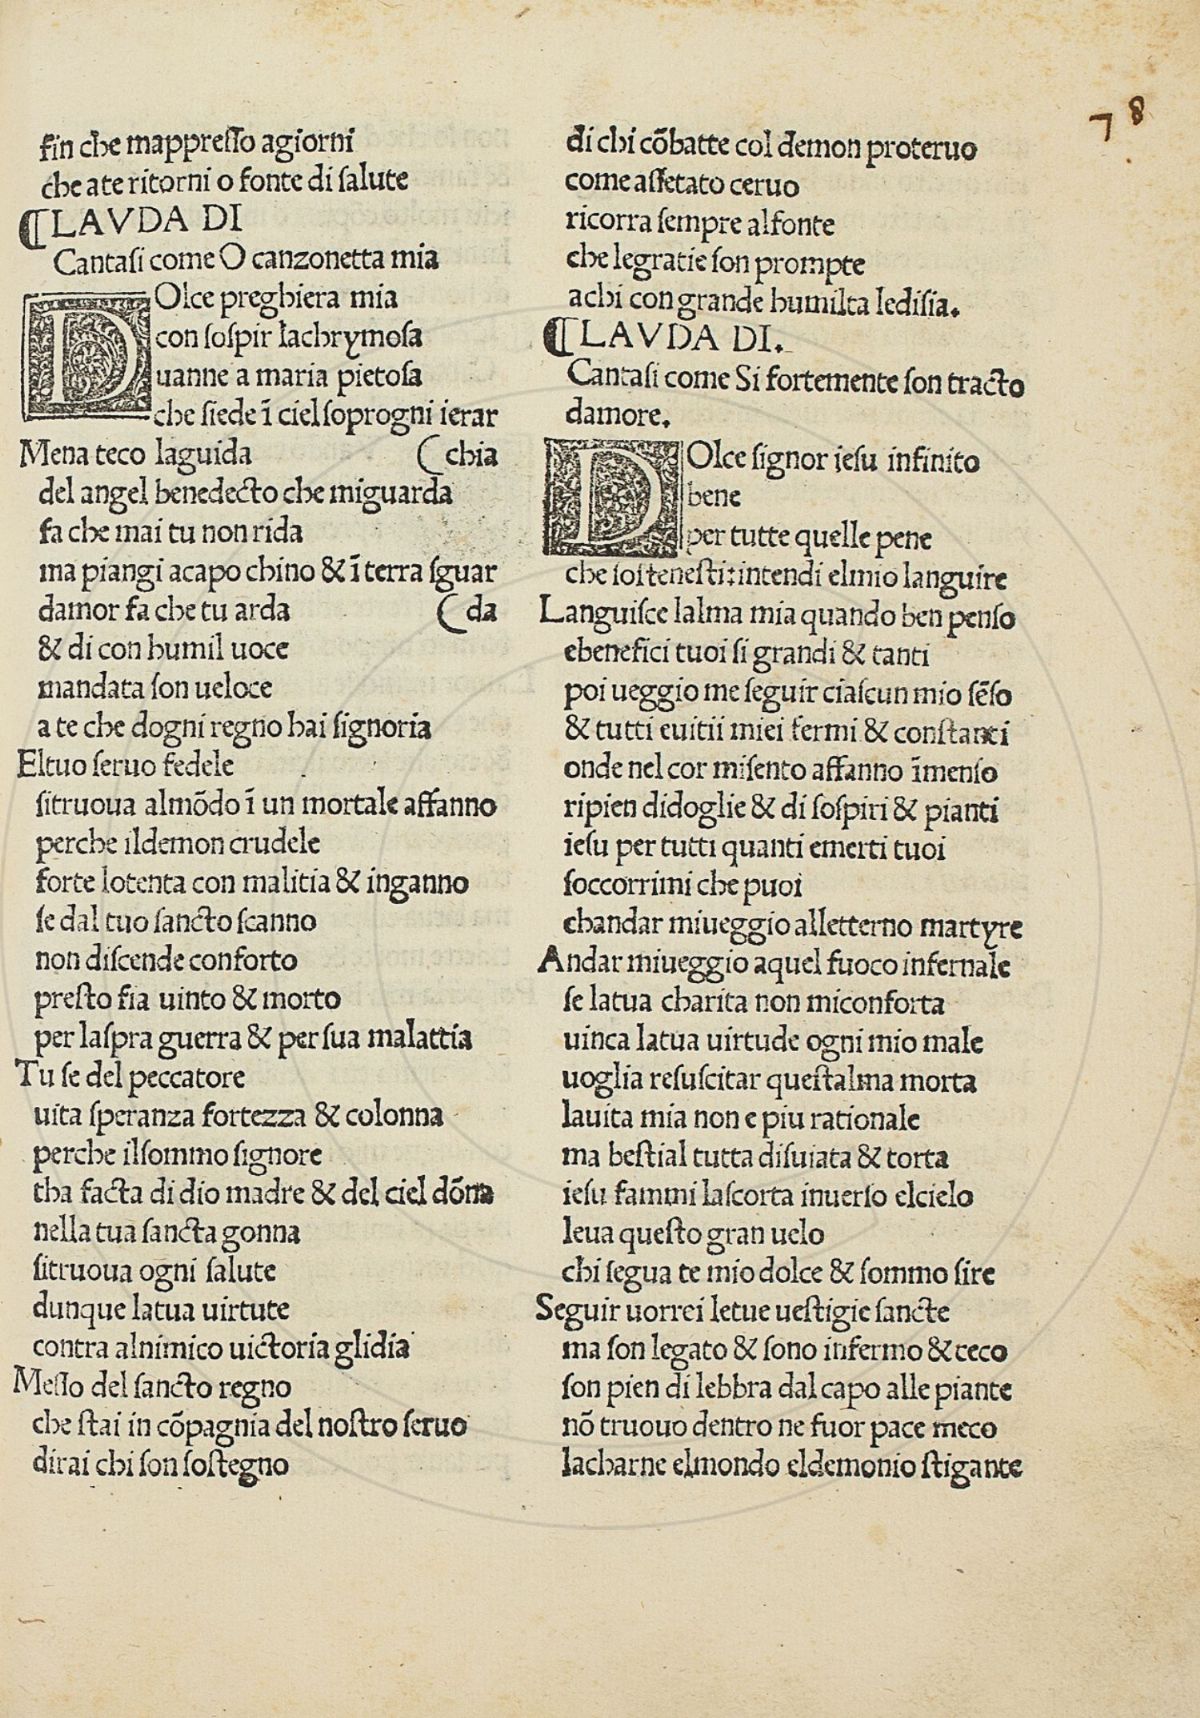 78
fin che mappresso agiorni
che ate ritorni o fonte di salute
¶LAVDA DI
Cantasi come O canzonetta mia
DOlce preghiera mia
con sospir lachrymosa
uanne a maria pietosa
che siede ī ciel soprogni ierar
Mena teco laguida (chia
del angel benedecto che miguarda
fa che mai tu non rida
ma piangi acapo chino & ī terra sguar
damor fa che tu arda (da
& di con humil uoce
mandata son ueloce
a te che dogni regno hai signoria
Eltuo seruo fedele
sitruoua almōdo ī un mortale affanno
perche ildemon crudele
forte lotenta con malitia & inganno
se dal tuo sancto scanno
non discende conforto
presto fia uinto & morto
per laspra guerra & per sua malattia
Tu se del peccatore
uita speranza fortezza & colonna
perche ilsommo signore
tha facta di dio madre & del ciel dōna
nella tua sancta gonna
sitruoua ogni salute
dunque latua uirtute
contra alnimico uictoria glidia
Messo del sancto regno
che stai in cōpagnia del nostro seruo
dirai chi son sostegno
di chi cōbatte col demon proteruo
come assetato ceruo
ricorra sempre alfonte
che legratie son prompte
achi con grande humilta ledisia.
¶LAVDA DI.
Cantasi come Si fortemente son tracto
damore.
DOlce signor iesu infinito
bene
per tutte quelle pene
che sostenesti:intendi elmio languire
Languisce lalma mia quando ben penso
ebenefici tuoi si grandi & tanti
poi ueggio me seguir ciascun mio sēso
& tutti euitii miei fermi & constanti
onde nel cor misento affanno īmenso
ripien didoglie & di sospiri & pianti
iesu per tutti quanti emerti tuoi
soccorrimi che puoi
chandar miueggio alletterno martyre
Andar miueggio aquel fuoco infernale
se latua charita non miconforta
uinca latua uirtude ogni mio male
uoglia resuscitar questalma morta
lauita mia non e piu rationale
ma bestial tutta disuiata & torta
iesu fammi lascorta inuerso elcielo
leua questo gran uelo
chi segua te mio dolce & sommo sire
Seguir uorrei letue uestigie sancte
ma son legato & sono infermo & ceco
son pien di lebbra dal capo alle piante
nō truouo dentro ne fuor pace meco
lacharne elmondo eldemonio stigante